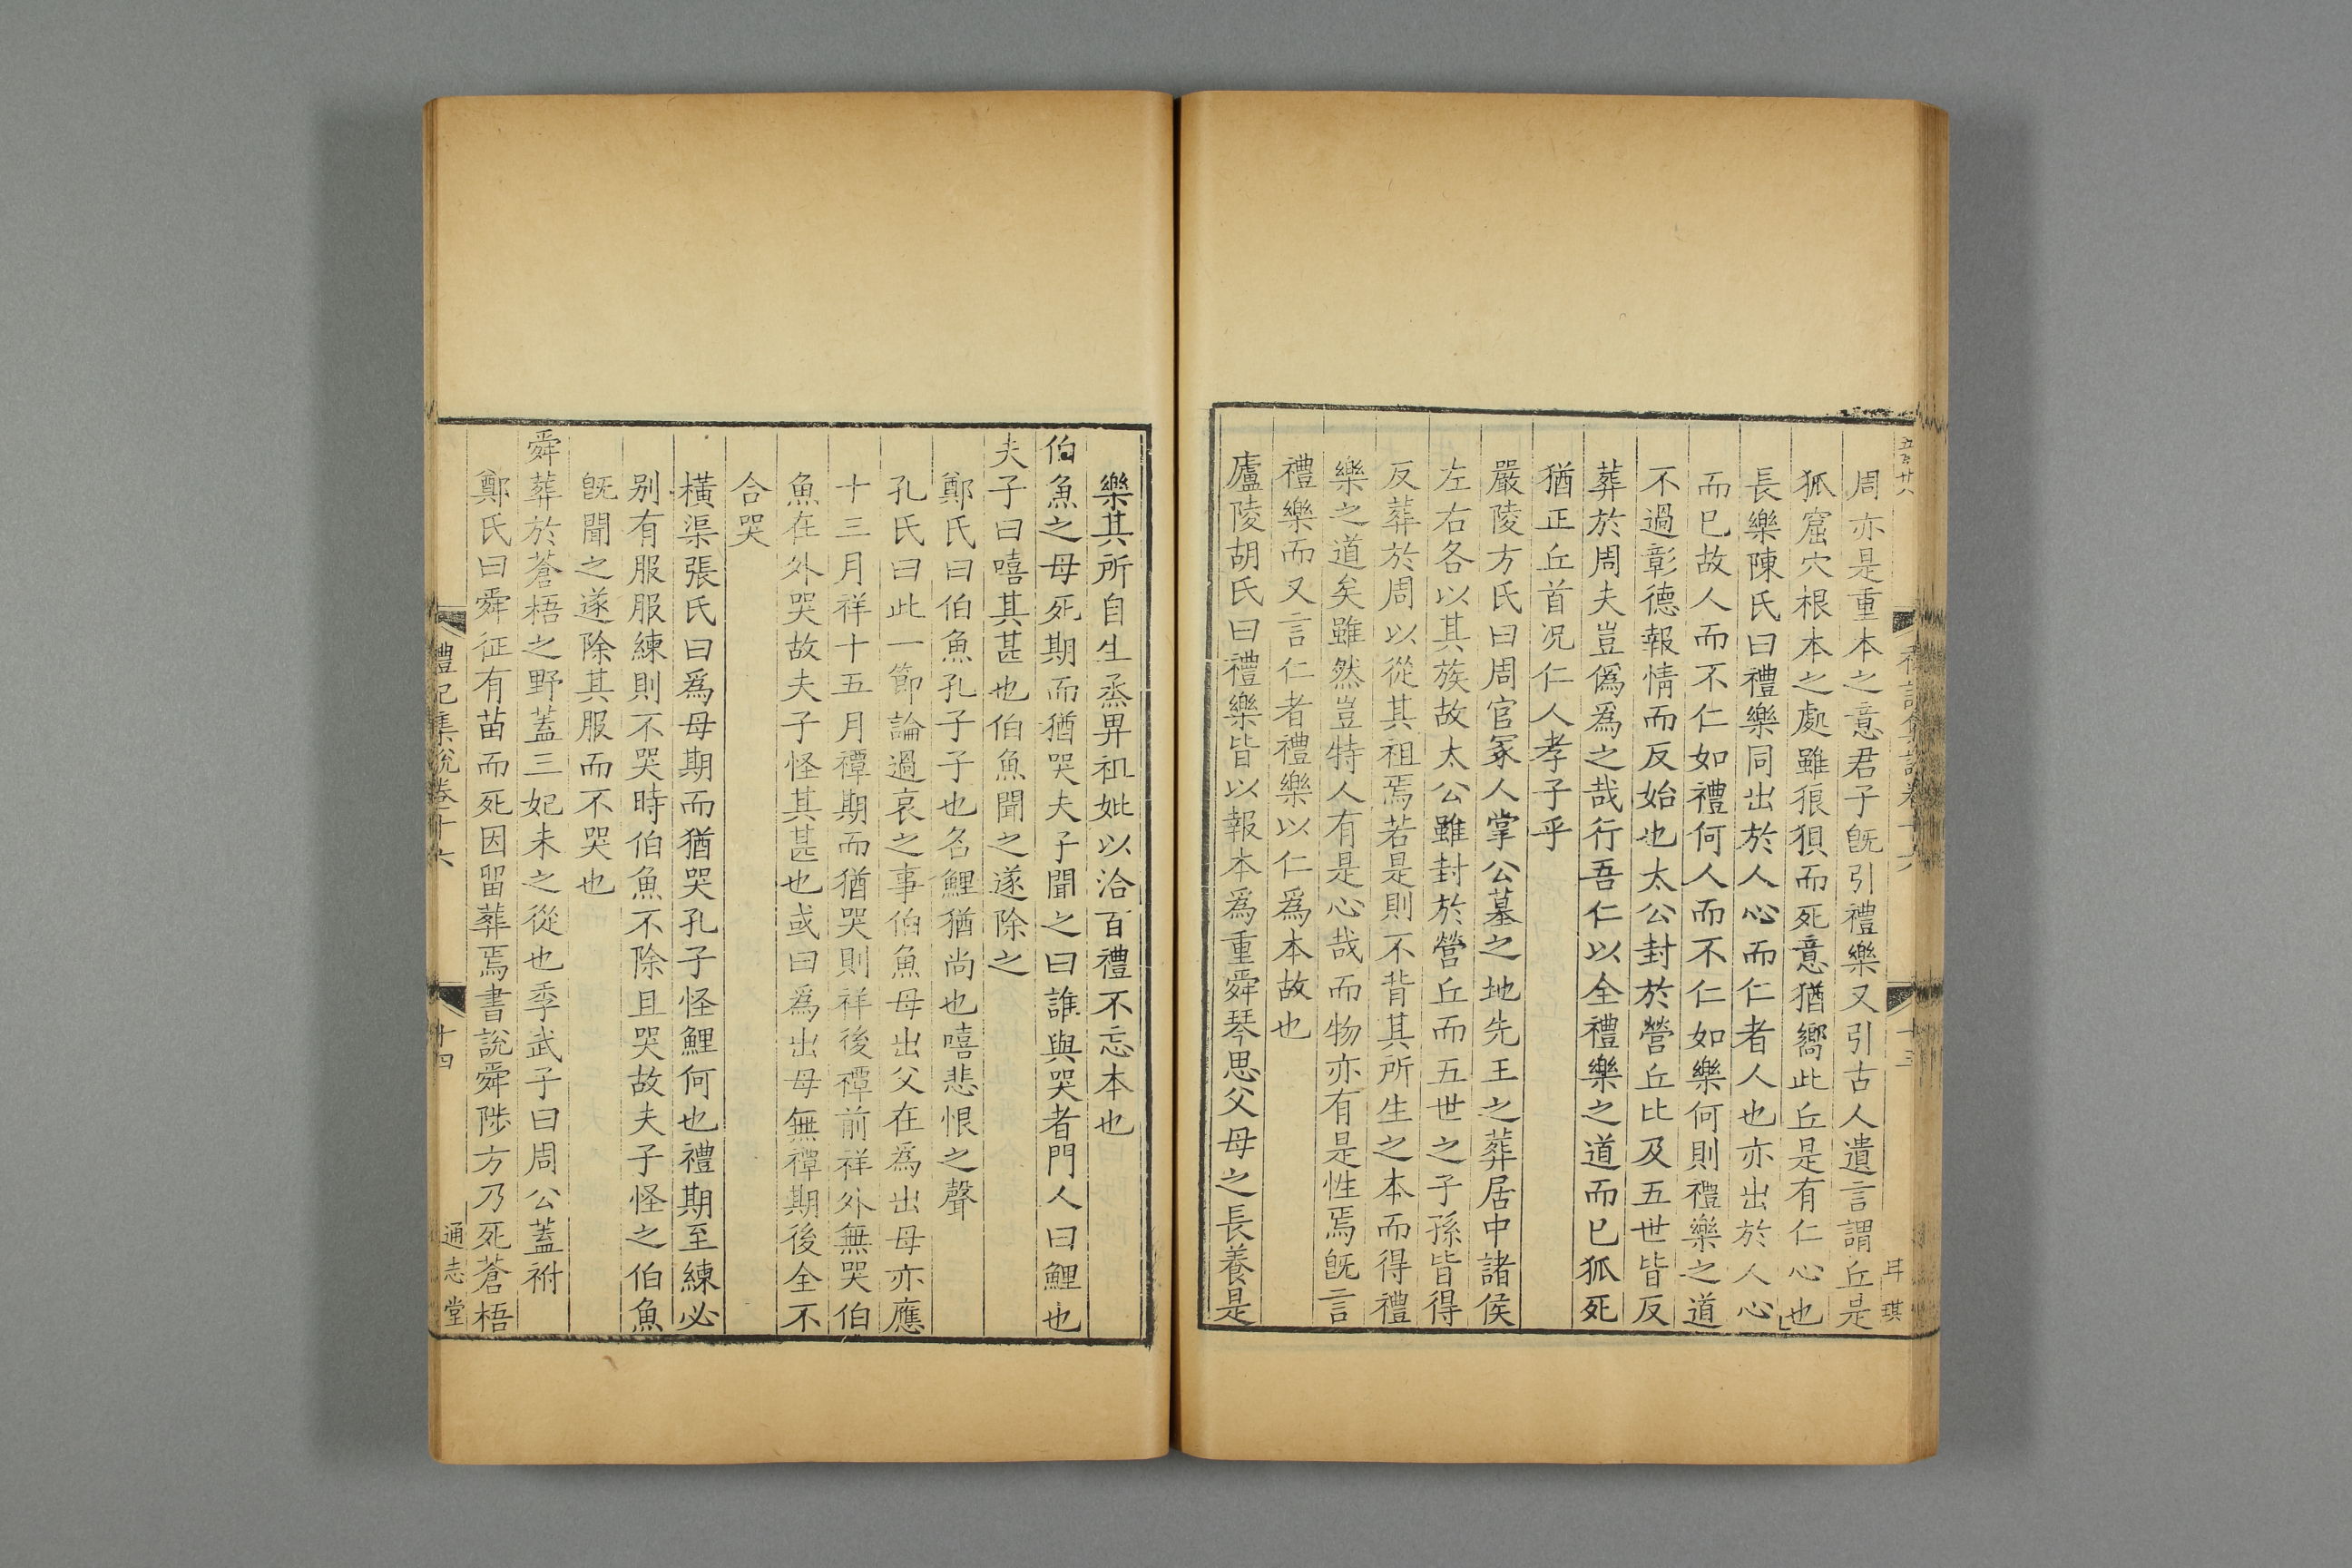 周亦是重本之意君子旣引禮樂又引古人遺言謂丘是
狐窟穴根本之處雖狼狽而死意猶嚮此丘是有仁心也
長樂陳氏曰禮樂同出於人心而仁者人也亦出於人心
而已故人而不仁如禮何人而不仁如樂何則禮樂之道
不過彰德報情而反始也太公封於營丘比及五世皆反
葬於周夫豈僞爲之哉行吾仁以全禮樂之道而已狐死
猶正丘首况仁人孝子乎
嚴陵方氏曰周官冢人掌公墓之地先王之葬居中諸侯
左右各以其族故太公雖封於營丘而五世之子孫皆得
反葬於周以從其祖焉若是則不背其所生之本而得禮
樂之道矣雖然豈特人有是心哉而物亦有是性焉旣言
禮樂而又言仁者禮樂以仁爲本故也
廬陵胡氏曰禮樂皆以報本爲重舜琴思父母之長養是
樂其所自生烝畀祖妣以洽百禮不忘本也
伯魚之母死期而猶哭夫子聞之曰誰與哭者門人曰鯉也
夫子曰嘻其甚也伯魚聞之遂除之
鄭氏曰伯魚孔子子也名鯉猶尚也嘻悲恨之聲
孔氏曰此一節論過哀之事伯魚母出父在爲出母亦應
十三月祥十五月禫期而猶哭則祥後禫前祥外無哭伯
魚在外哭故夫子怪其甚也或曰爲出母無禫期後全不
合哭
橫渠張氏曰爲母期而猶哭孔子怪鯉何也禮期至練必
别有服服練則不哭時伯魚不除且哭故夫子怪之伯魚
旣聞之遂除其服而不哭也
舜葬於蒼梧之野蓋三妃未之從也季武子曰周公蓋祔
鄭氏曰舜征有苗而死因留葬焉書説舜陟方乃死蒼梧
禮記集説卷十六
十四
通志堂